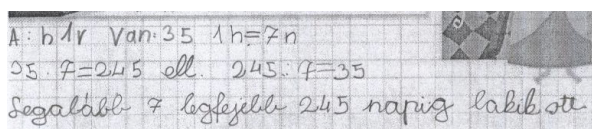 A: h 1r Van: 35 1h=7n
35 · 7=245 ell. 245: 7=35
Legalább 7 legfejebb 245 napig lakik ott